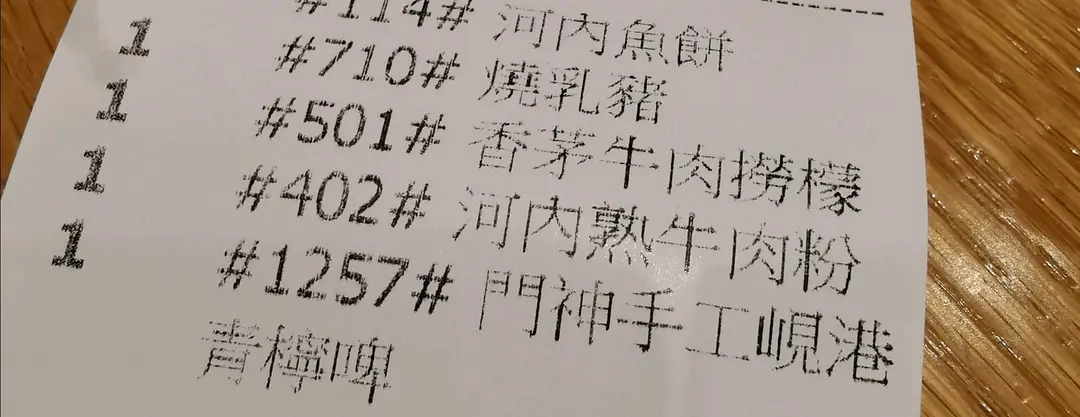 #114# 河內魚餅
1 #710# 燒乳豬
1 #501# 香茅牛肉撈檬
1 #402# 河內熟牛肉粉
1 #1257# 門神手工峴港
青檸啤